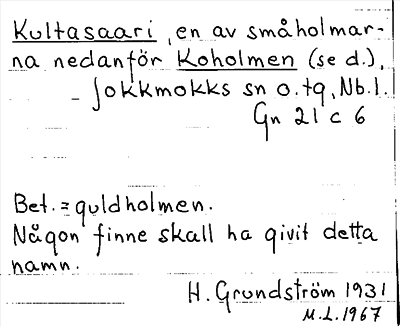 Kultasaari, en av småholmar-
na nedanför Koholmen (se d.),
Jokkmokks sn o. tg, Nb.l.
Gn 21 c 6
Bet. = guldholmen.
Någon finne skall ha givit detta
namn.
H. Grundström 1931
M.L. 1967